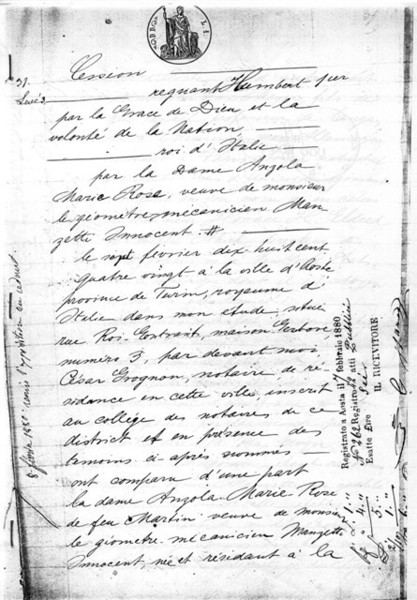 31
Cession
regnant Humbert 1er
par la Grace de Dieu et la
volonté de la Nation
roi d'Italie
par la Dame Anzola
Marie Rose, veuve de monsieur
le géometre-mécanicien Man
zetti Innocent. #
le sept février dix huit cent
quatre vingt à la ville d'Aoste
province de Turin, royaume d'
Italie dans mon étude, située
rue Roi maison
numéro 3, par devant moi
César Grognon, notaire, de ré
sidance en cette ville, inscrit
au collège des notaires de ce
district et en présence des
temoins ci-après nommés
ont comparu d'une part
la dame Anzola Marie-Rose
de feu Martin veuve de monsieur
le géometre-mécanicien Manzetti
Innocent, née et résidant à la
8 février 1880
Registrato a Aosta il febbraio 1880
Registro atti Pubblici
Esatte lire
IL RICEVITORE